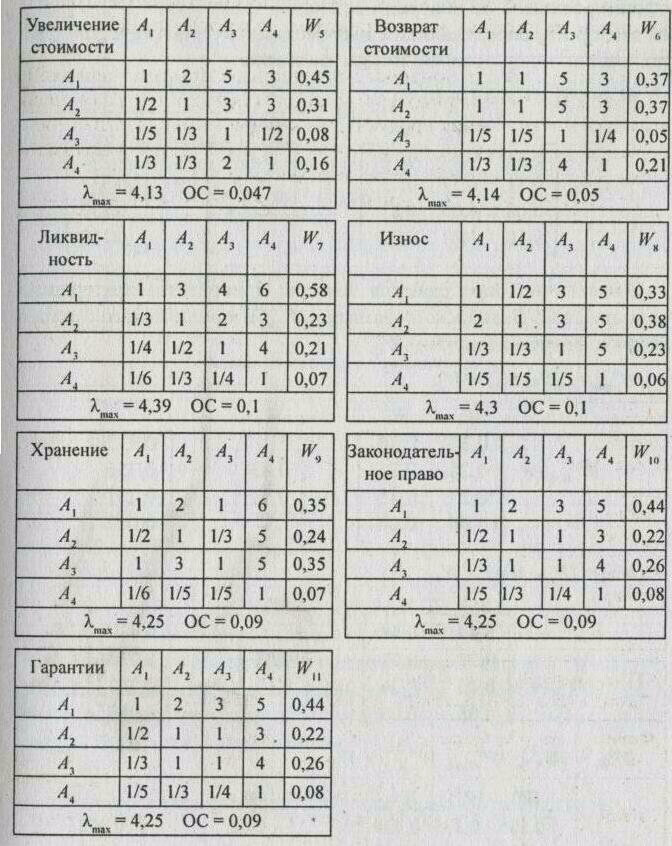 Увеличение стоимости A₁ A₂ A₃ A₄ W₅
A₁ 1 2 5 3 0,45
A₂ 1/2 1 3 3 0,31
A₃ 1/5 1/3 1 1/2 0,08
A₄ 1/3 1/3 2 1 0,16
λmax = 4,13 ОС = 0,047
Возврат стоимости A₁ A₂ A₃ A₄ W₆
A₁ 1 1 5 3 0,37
A₂ 1 1 5 3 0,37
A₃ 1/5 1/5 1 1/4 0,05
A₄ 1/3 1/3 4 1 0,21
λmax = 4,14 ОС = 0,05
Ликвид-
ность A₁ A₂ A₃ A₄ W₇
A₁ 1 3 4 6 0,58
A₂ 1/3 1 2 3 0,23
A₃ 1/4 1/2 1 4 0,21
A₄ 1/6 1/3 1/4 1 0,07
λmax = 4,39 ОС = 0,1
Износ A₁ A₂ A₃ A₄ W₈
A₁ 1 1/2 3 5 0,33
A₂ 2 1 3 5 0,38
A₃ 1/3 1/3 1 5 0,23
A₄ 1/5 1/5 1/5 1 0,06
λmax = 4,3 ОС = 0,1
Хранение A₁ A₂ A₃ A₄ W₉
A₁ 1 2 1 6 0,35
A₂ 1/2 1 1/3 5 0,24
A₃ 1 3 1 5 0,35
A₄ 1/6 1/5 1/5 1 0,07
λmax = 4,25 ОС = 0,09
Законодатель-
ное право A₁ A₂ A₃ A₄ W₁₀
A₁ 1 2 3 5 0,44
A₂ 1/2 1 1 3 0,22
A₃ 1/3 1 1 4 0,26
A₄ 1/5 1/3 1/4 1 0,08
λmax = 4,25 ОС = 0,09
Гарантии A₁ A₂ A₃ A₄ W₁₁
A₁ 1 2 3 5 0,44
A₂ 1/2 1 1 3 0,22
A₃ 1/3 1 1 4 0,26
A₄ 1/5 1/3 1/4 1 0,08
λmax = 4,25 ОС = 0,09